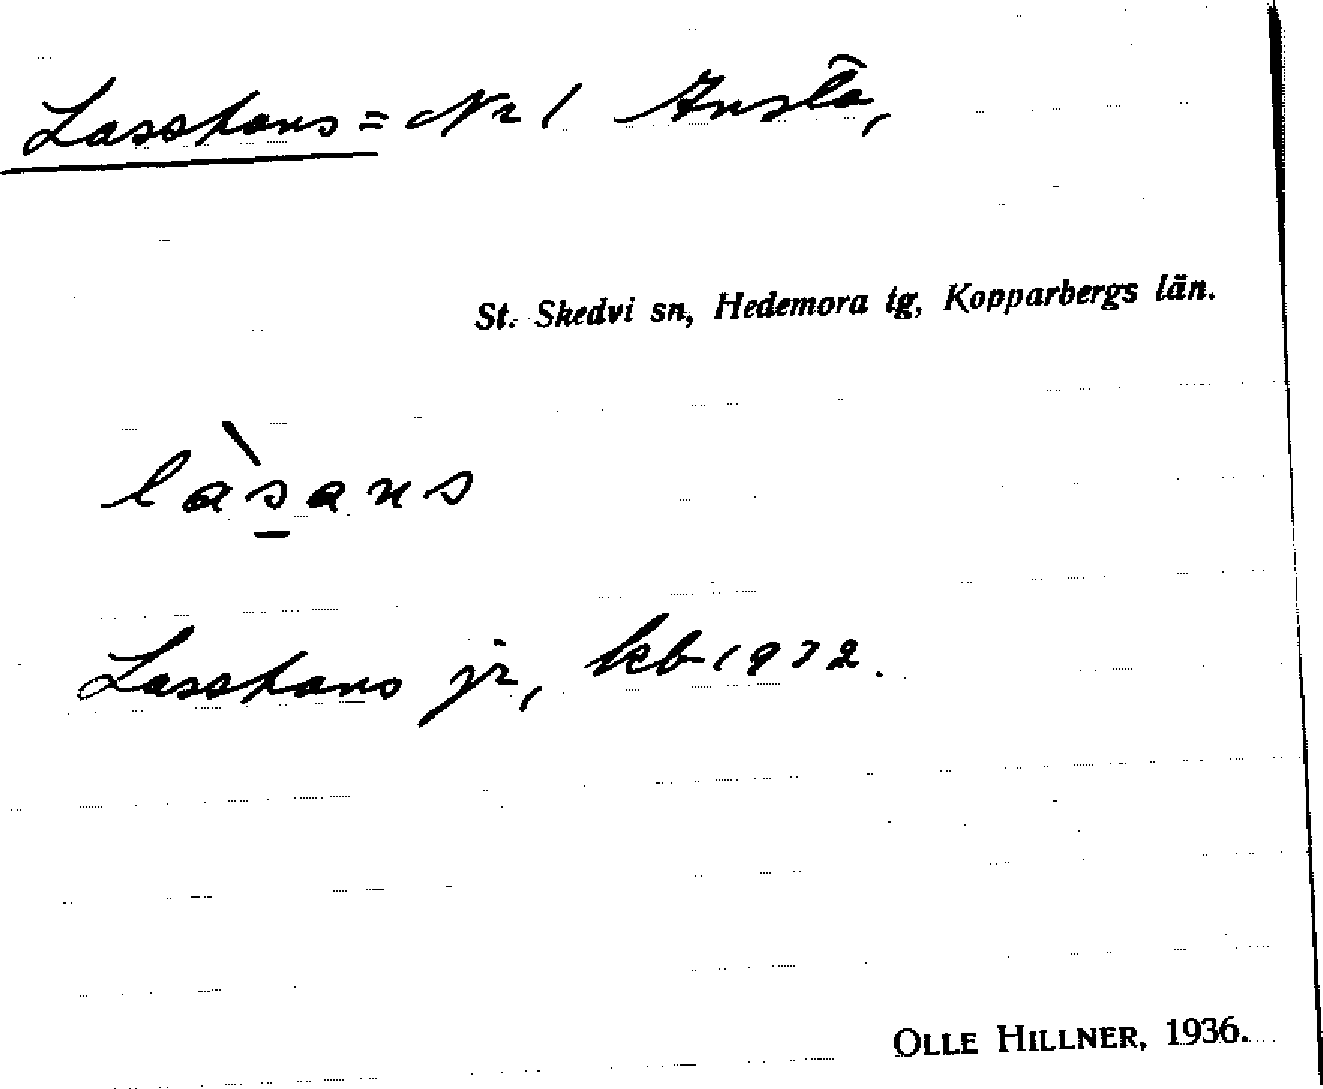 Lasshans = Nr 1 Ansta,
St. Skedvi sn, Hedemora tg, Kopparbergs län.
làsans
Lasshans jr, kb 1932.
OLLE HILLNER, 1936.